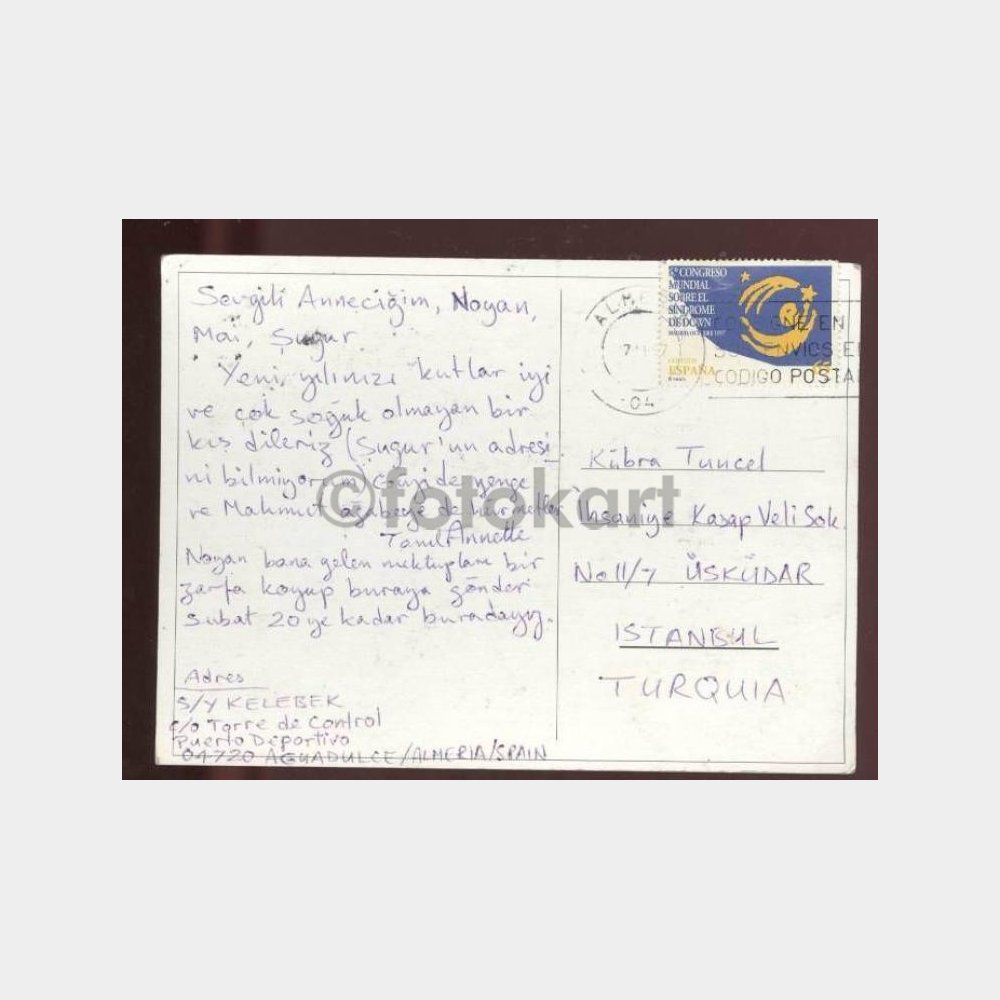 Sevgili Anneciğim, Noyan,
Mai, Şugur
Yeni yılınızı kutlar iyi
ve çok soğuk olmayan bir
kış dileriz (Şugur'un adresi-
ni bilmiyorum) yenge
ve Mahmut ağabeye de hürmetler
Annette
Noyan bana gelen mektupları bir
zarfa koyup buraya gönder
Şubat 20 ye kadar buradayız.
Adres
S/Y KELEBEK
c/o Torre de Control
Puerto Deportivo
04720 AGUADULCE/ALMERIA/SPAIN
©fotokart
6º CONGRESO
MUNDIAL
SOBRE EL
SINDROME
DE DOWN
ESPAÑA
04
CODIGO POSTAL
Kübra Tuncel
İhsaniye Kasap Veli Sok.
No 11/7 ÜSKÜDAR
ISTANBUL
TURQUIA